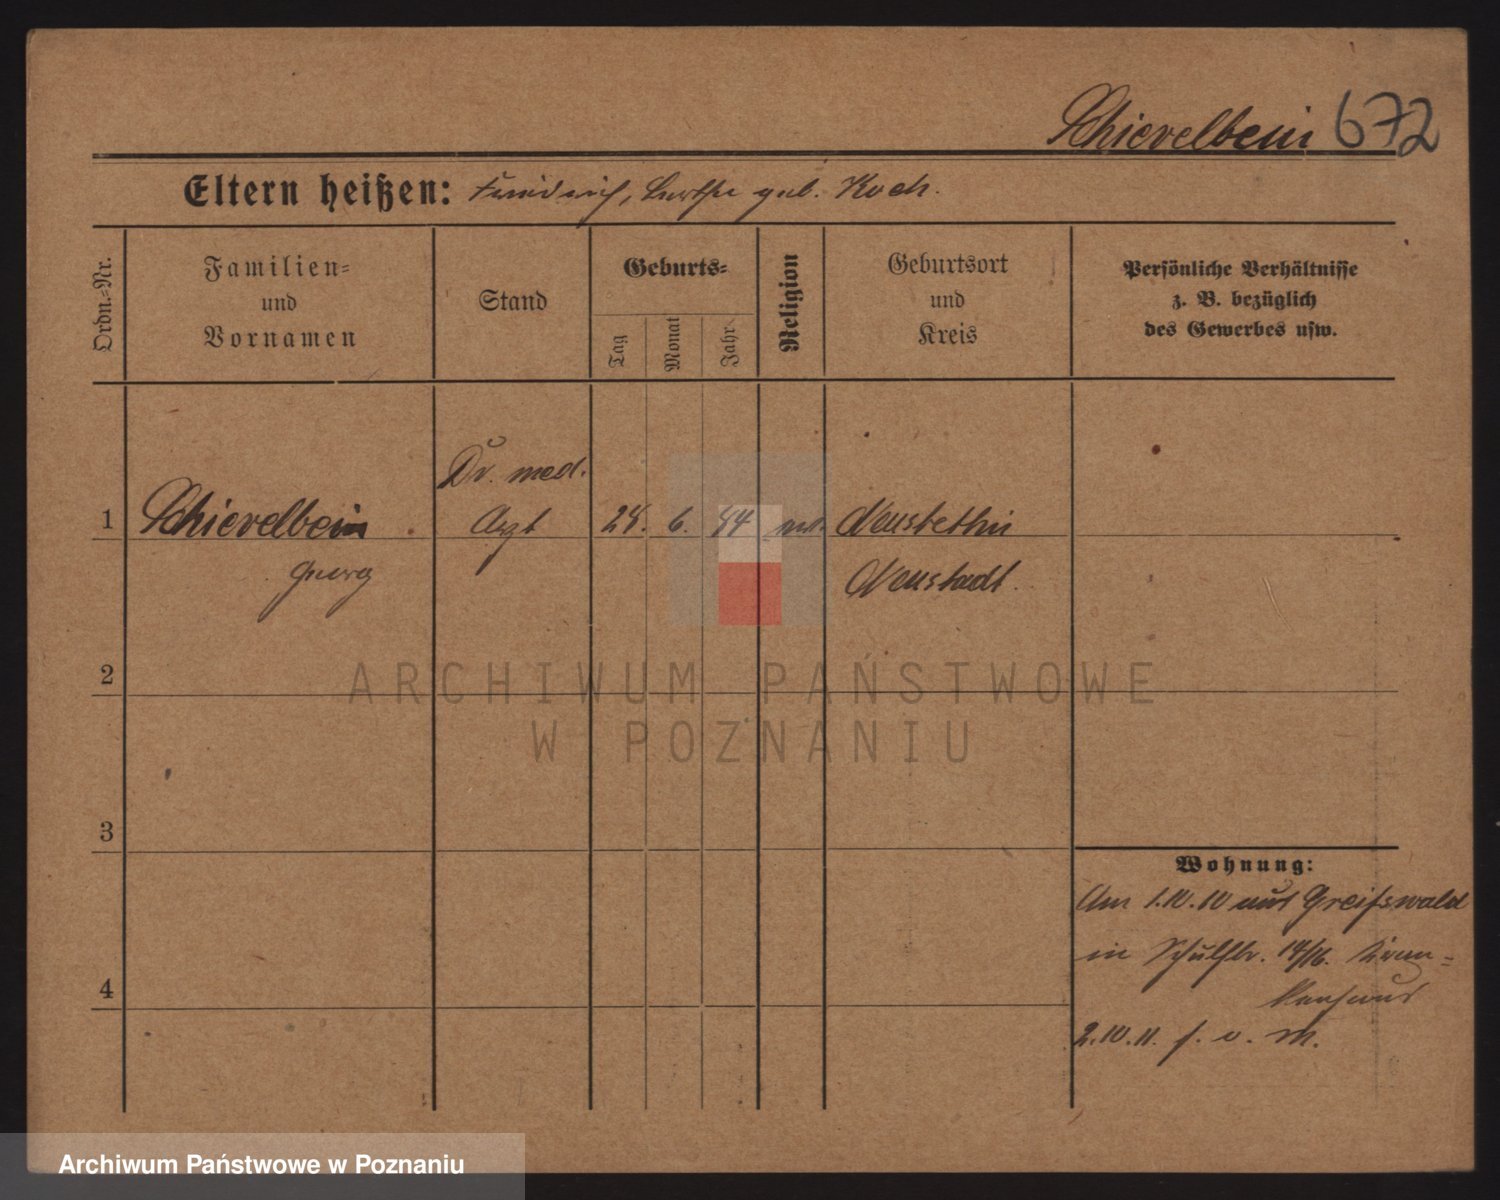 Schievelbein 672
Eltern heißen: Friedrich, Berthe geb. Koch.
Ordn.-Nr.
Familien- und Vornamen
Stand
Geburts-
Tag
Monat
Jahr
Religion
Geburtsort und Kreis
Persönliche Verhältnisse
z. B. bezüglich
des Gewerbes usw.
Dr. med.
1 Schievelbein Arzt 24. 6. 84 Neustettin
Georg Neustadt.
2
3
4
Wohnung:
Am 1.10.10 aus Greifswald
in Schulstr. 14/16. Kran-
kenhaus
2.10.11. f. v. M.
ARCHIWUM PAŃSTWOWE
W POZNANIU
Archiwum Państwowe w Poznaniu